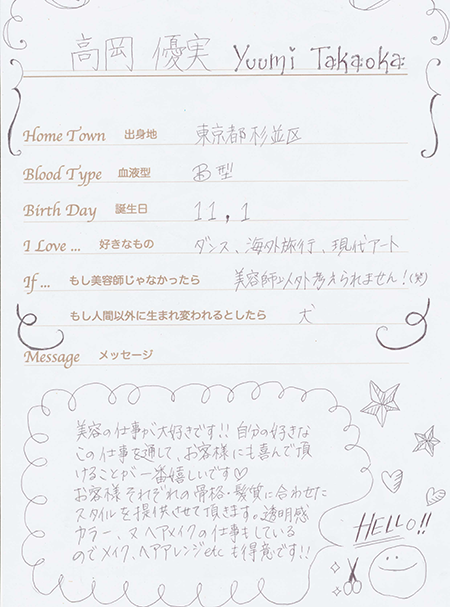 高岡 優実 Yuumi Takaoka
Home Town 出身地 東京都杉並区
Blood Type 血液型 B型
Birth Day 誕生日 11.1
I Love ... 好きなもの ダンス、海外旅行、現代アート
If ... もし美容師じゃなかったら 美容師以外考えられません!(笑)
もし人間以外に生まれ変われるとしたら 犬
Message メッセージ
美容の仕事が大好きです!! 自分の好きな
この仕事を通して、お客様にも喜んで頂
けることが一番嬉しいです♡
お客様それぞれの骨格・髪質に合わせた
スタイルを提供させて頂きます。透明感
カラー、又ヘアメイクの仕事もしている
のでメイク、ヘアアレンジetcも得意です!!
HELLO!!